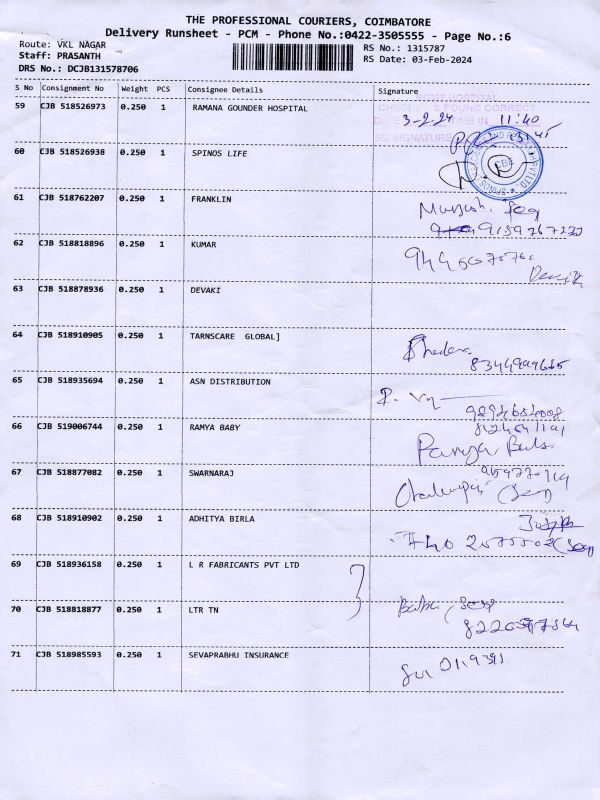 THE PROFESSIONAL COURIERS, COIMBATORE
Delivery Runsheet - PCM - Phone No.:0422-3505555 - Page No.:6
Route: VKL NAGAR
RS No.: 1315787
Staff: PRASANTH
RS Date: 03-Feb-2024
DRS No.: DCJB131578706
S No Consignment No Weight PCS Consignee Details Signature
59 CJB 518526973 0.250 1 RAMANA GOUNDER HOSPITAL
CHECKED & FOUND CORRECT
3-2-24 11:40
60 CJB 518526938 0.250 1 SPINOS LIFE
61 CJB 518762207 0.250 1 FRANKLIN
62 CJB 518818896 0.250 1 KUMAR
63 CJB 518878936 0.250 1 DEVAKI
64 CJB 518910905 0.250 1 TARNSCARE GLOBAL]
65 CJB 518935694 0.250 1 ASN DISTRIBUTION
66 CJB 519006744 0.250 1 RAMYA BABY
67 CJB 518877082 0.250 1 SWARNARAJ
68 CJB 518910902 0.250 1 ADHITYA BIRLA
69 CJB 518936158 0.250 1 L R FABRICANTS PVT LTD
70 CJB 518818877 0.250 1 LTR TN
71 CJB 518985593 0.250 1 SEVAPRABHU INSURANCE